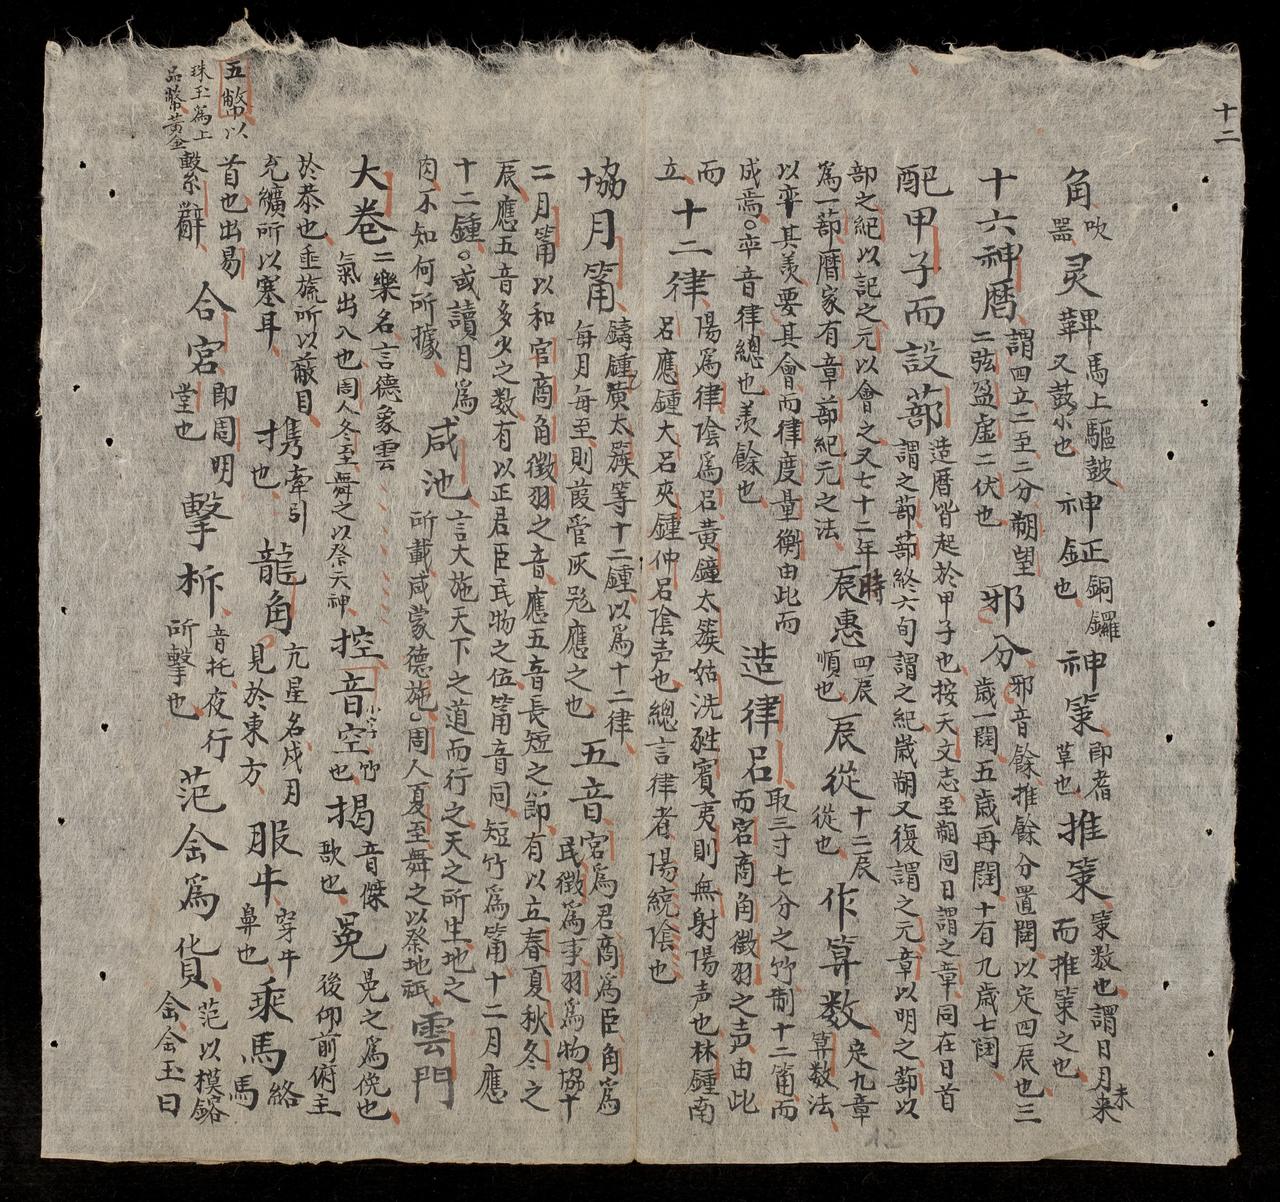 十二
角吹器灵鼙馬上驅皷又鼓小也神鉦銅鑼也神策即蓍草也推策策数也謂日月未来而推策之也
十六神曆謂四立二至二分朔望二弦盈虛二伏也邪分邪音餘推餘分置閏以定四辰也三歲一閏五歲再閏十有九歲七閏
配甲子而設蔀造曆皆起於甲子也按天文志至朔同日謂之章同在日首謂之蔀蔀終六旬謂之紀歲朔又復謂之元章以明之蔀以
部之紀以記之元以會之又七十二年為一蔀曆家有章蔀紀元之法辰惠四辰順也時辰從十二辰從也作算数定九章算数法
以率其羨要其會而律度量衡由此而成焉。率音律總也羨餘也造律呂取三寸七分之竹制十二筩而而宮商角徵羽之声由此
而立十二律陽為律陰為呂黃鐘太簇姑洗甤賓夷則無射陽声也林鍾南呂應鍾大呂夾鍾仲呂陰声也總言律者陽統陰也
協月筩鑄鍾黃太簇等十二鍾以為十二律每月每至則葭管灰飛應之也五音宮為君商為臣角為民徵為事羽為物協十
十二月筩以和宮商角徵羽之音應五音長短之節有以立春夏秋冬之
辰應五音多少之数有以正君臣民物之位筩音同短竹為筩十二月應
十二鍾。或讀月為肉不知何所據咸池言大施天下之道而行之天之所生地之所載咸蒙德施周人夏至舞之以祭地祇雲門
大卷二樂名言德象雲氣出入也周人冬至舞之以祭天神控音空小竹也揭音傑歌也冕冕之為俛也後仰前俯主
於恭也垂旒所以蔽目充纊所以塞耳携牽引也龍角亢星名戍月見於東方服牛穿牛鼻也乘馬絡馬
首也出易繫辭合宮即周明堂也擊柝音托夜行所擊也范金為貨范以模鎔金金玉曰
五幣以珠玉為上品幣黃金